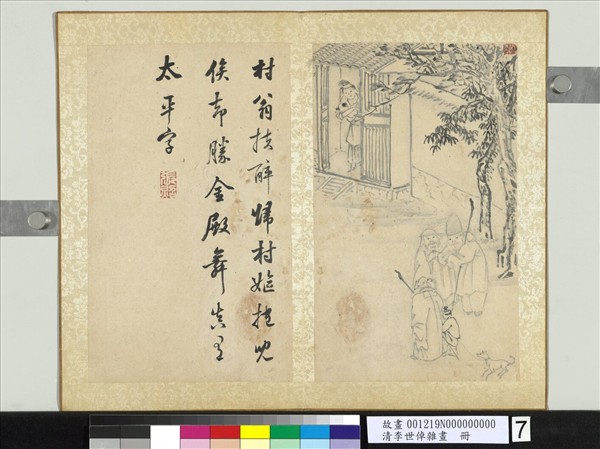 村翁扶醉歸村嫗抱兒
侯却勝金殿舞真有
太平字
故畫 001219N000000000
清李世倬雜畫 冊
7